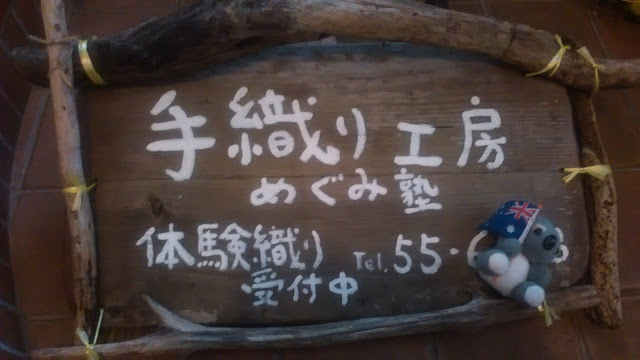 手織り工房
めぐみ塾
体験織り Tel. 55-
受付中